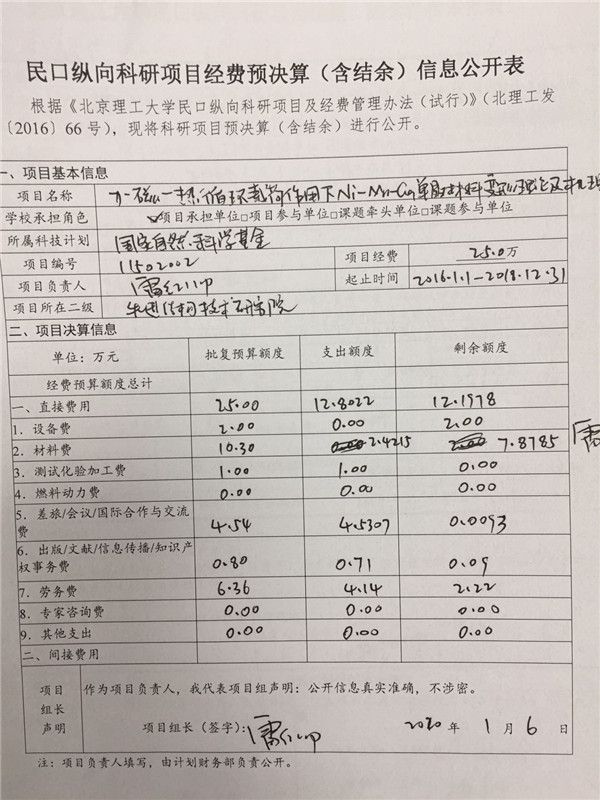 民口纵向科研项目经费预决算（含结余）信息公开表
根据《北京理工大学民口纵向科研项目及经费管理办法（试行）》（北理工发
〔2016〕66号），现将科研项目预决算（含结余）进行公开。
一、项目基本信息
项目名称 力-磁-热循环载荷作用下Ni-Mn-Ga单晶材料变形理论及机理
学校承担角色 ☑项目承担单位□项目参与单位□课题牵头单位□课题参与单位
所属科技计划 国家自然科学基金
项目编号 11502002 项目经费 25.0万
项目负责人 起止时间 2016.1.1-2018.12.31
项目所在二级 先进结构技术研究院
二、项目决算信息
单位：万元 批复预算额度 支出额度 剩余额度
经费预算额度总计
一、直接费用 25.00 12.8022 12.1978
1．设备费 2.00 0.00 2.00
2．材料费 10.30 2.4215 7.8785 雷
3．测试化验加工费 1.00 1.00 0.00
4．燃料动力费 0.00 0.00 0.00
5．差旅/会议/国际合作与交流
费 4.54 4.5307 0.0093
6．出版/文献/信息传播/知识产
权事务费 0.80 0.71 0.09
7．劳务费 6.36 4.14 2.22
8．专家咨询费 0.00 0.00 0.00
9．其他支出 0.00 0.00 0.00
二、间接费用
项目
组长
声明
作为项目负责人，我代表项目组声明：公开信息真实准确，不涉密。
项目组长（签字）： 2020年1月6日
注：项目负责人填写，由计划财务部负责公开。